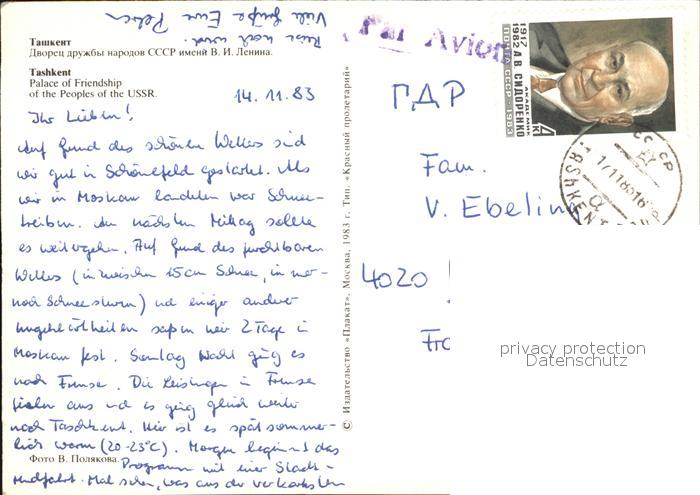 Ташкент
Дворец дружбы народов СССР имени В. И. Ленина.
Tashkent
Palace of Friendship
of the Peoples of the USSR.
14.11.83
Ihr Lieben!
Auf Grund des schönen Wetters sind
wir gut in Schönefeld gestartet. Als
wir in Moskau landeten war Schnee-
treiben. Am nächsten Mittag sollte
es weitergehen. Auf Grund des furchtbaren
Wetters (inzwischen 15 cm Schnee, immer-
noch Schneesturm) und einiger anderer
saßen wir 2 Tage in
Moskau fest. Sonntag Nacht ging es
nach Frunse. Die Leistungen in Frunse
fielen aus und es ging gleich weiter
nach Taschkent. Hier ist es spätsommer-
lich warm (20-23°C). Morgen beginnt das
Programm mit einer Stadt-
rundfahrt. Mal sehen, was aus der verkorksten
Reise noch wird.
Viele Grüße Eure Petra
Фото В. Полякова.
© Издательство «Плакат». Москва, 1983 г. Тип. «Красный пролетарий»
Par Avion
1917
1982
АКАДЕМИК
А.В. СИДОРЕНКО
ПОЧТА СССР · 1983
4К
СССР
TASHKENT
ГДР
Fam.
V. Ebeling
4020
privacy protection
Datenschutz